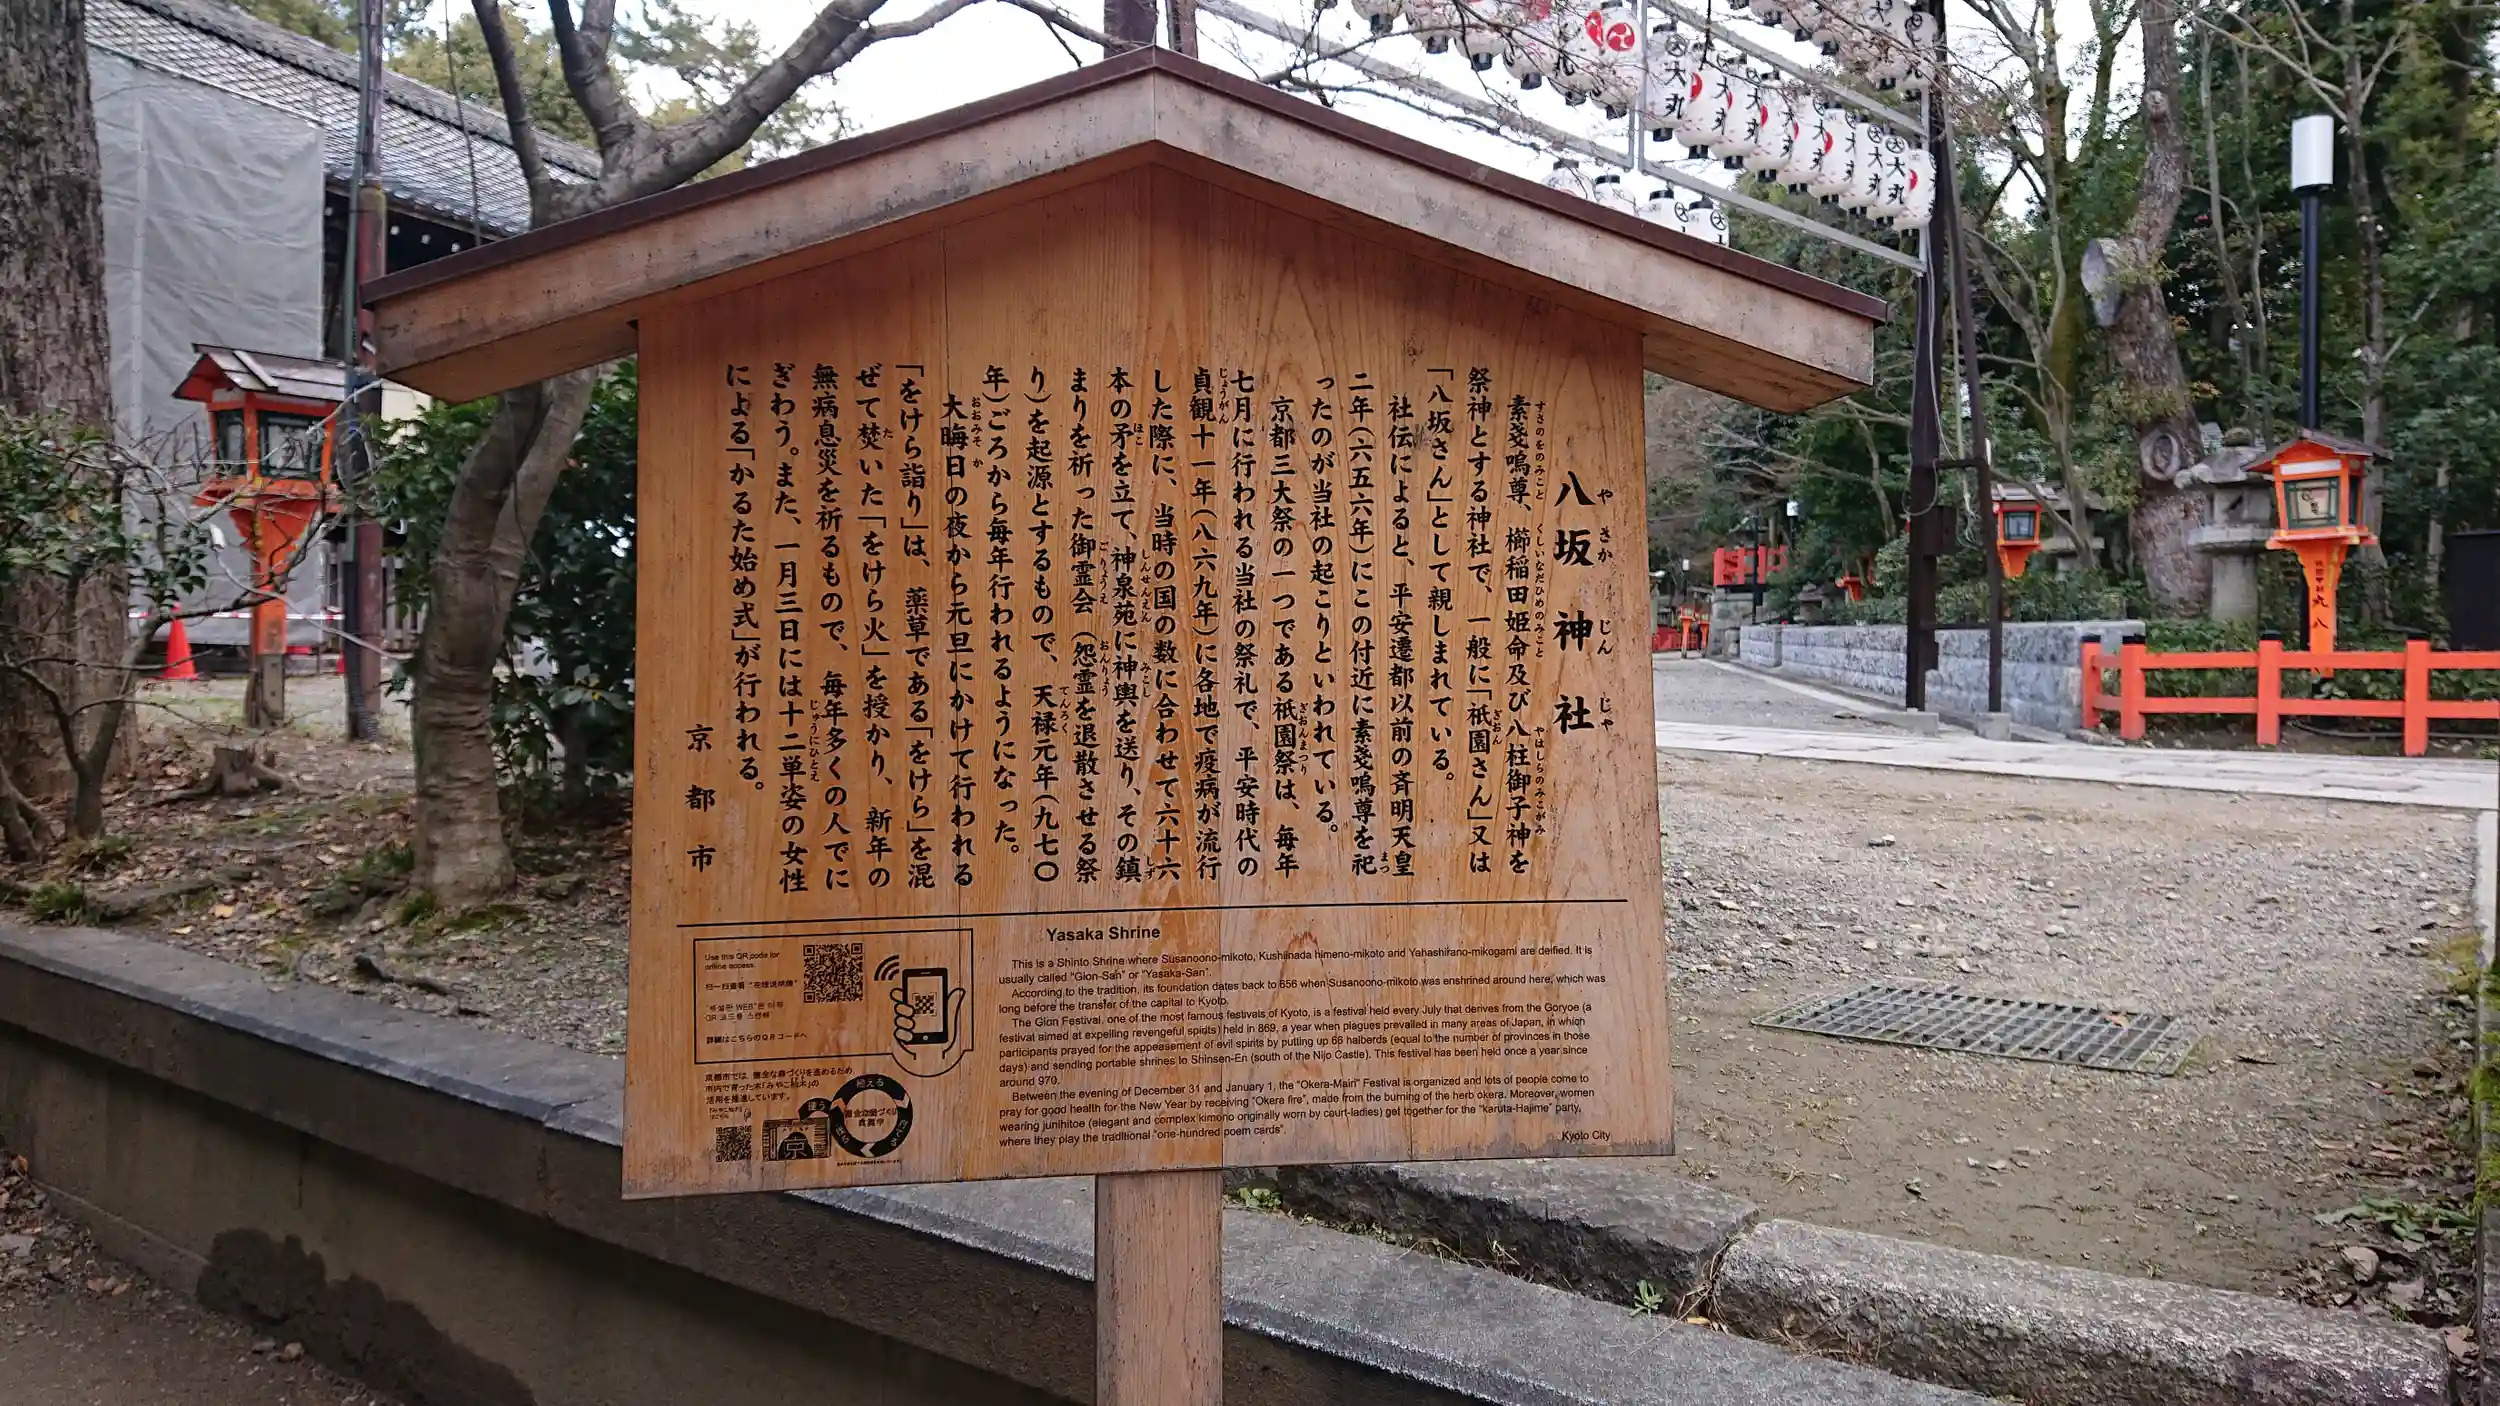 八坂神社
やさかじんじゃ
素戔嗚尊、櫛稲田姫命及び八柱御子神を
すさのをのみこと くしいなだひめのみこと やはしらのみこがみ
祭神とする神社で、一般に「祇園さん」又は
ぎおん
「八坂さん」として親しまれている。
社伝によると、平安遷都以前の斉明天皇
二年(六五六年)にこの付近に素戔嗚尊を祀
まつ
ったのが当社の起こりといわれている。
京都三大祭の一つである祇園祭は、毎年
ぎおんまつり
七月に行われる当社の祭礼で、平安時代の
貞観十一年(八六九年)に各地で疫病が流行
じょうがん
した際に、当時の国の数に合わせて六十六
本の矛を立て、神泉苑に神輿を送り、その鎮
ほこ しんせんえん みこし しず
まりを祈った御霊会(怨霊を退散させる祭
ごりょうえ おんりょう
り)を起源とするもので、天禄元年(九七〇
てんろく
年)ごろから毎年行われるようになった。
大晦日の夜から元旦にかけて行われる
おおみそか
「をけら詣り」は、薬草である「をけら」を混
ぜて焚いた「をけら火」を授かり、新年の
た
無病息災を祈るもので、毎年多くの人でに
ぎわう。また、一月三日には十二単姿の女性
じゅうにひとえ
による「かるた始め式」が行われる。
京都市
Yasaka Shrine
This is a Shinto Shrine where Susanoono-mikoto, Kushiinada himeno-mikoto and Yahashirano-mikogami are deified. It is
usually called "Gion-San" or "Yasaka-San".
According to the tradition, its foundation dates back to 656 when Susanoono-mikoto was enshrined around here, which was
long before the transfer of the capital to Kyoto.
The Gion Festival, one of the most famous festivals of Kyoto, is a festival held every July that derives from the Goryoe (a
festival aimed at expelling revengeful spirits) held in 869, a year when plagues prevailed in many areas of Japan, in which
participants prayed for the appeasement of evil spirits by putting up 66 halberds (equal to the number of provinces in those
days) and sending portable shrines to Shinsen-En (south of the Nijo Castle). This festival has been held once a year since
around 970.
Between the evening of December 31 and January 1, the "Okera-Mairi" Festival is organized and lots of people come to
pray for good health for the New Year by receiving "Okera fire", made from the burning of the herb okera. Moreover, women
wearing junihitoe (elegant and complex kimono originally worn by court-ladies) get together for the "karuta-Hajime" party,
where they play the traditional "one-hundred poem cards".
Kyoto City
Use this QR code for
online access.
詳細はこちらのQRコードへ
京都市では、健全な森づくりを進めるため
市内で育った木「みやこ杣木」の
活用を推進しています。
植える
使う
京
丸八